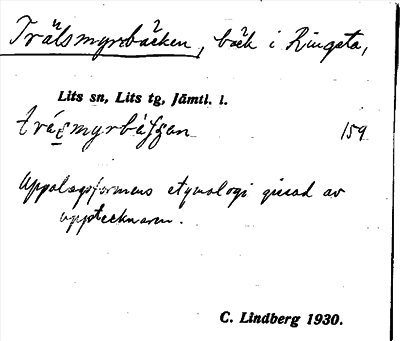 Trälsmyrbäcken, bäck i Ringsta,
Lits sn, Lits tg, Jämtl. l.
159
Uppslagsformens etymologi gissad av
upptecknaren.
C. Lindberg 1930.